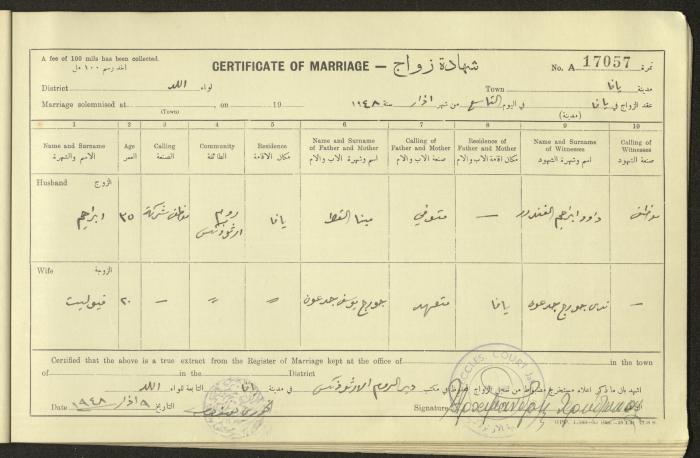 A fee of 100 mils has been collected.
اخذ رسم ١٠٠ مل
CERTIFICATE OF MARRIAGE — شهادة زواج
No. A 17057 نمرة
District اللد لواء
Town يافا مدينة
Marriage solemnised at , on 19
عقد الزواج في يافا في اليوم التاسع من شهر اذار سنة ١٩٤٨
(Town) (مدينة)
1 2 3 4 5 6 7 8 9 10
Name and Surname الاسم والشهرة
Age العمر
Calling الصنعة
Community الطائفة
Residence مكان الاقامة
Name and Surname of Father and Mother اسم وشهرة الاب والام
Calling of Father and Mother صنعة الاب والام
Residence of Father and Mother مكان اقامة الاب والام
Name and Surname of Witnesses اسم وشهرة الشهود
Calling of Witnesses صنعة الشهود
Husband الزوج
ابراهيم ٣٥ موظف شركة روم ارثوذكس يافا مينا القط متوفي — داود ابراهيم موظف
Wife الزوجة
فيوليت ٢٠ —〃 〃 جورج يوسف جدعون متعهد يافا جورج جدعون —
Certified that the above is a true extract from the Register of Marriage kept at the office of in the town
of in the District
اشهد بان ما ذكر اعلاه مستخرج مضبوط من سجل الزواج المحفوظ في مكتب دير الروم الارثوذكس في مدينة يافا التابعة للواء اللد
Date ٩ اذار ١٩٤٨ التاريخ
Signature
ECCLES. COURT